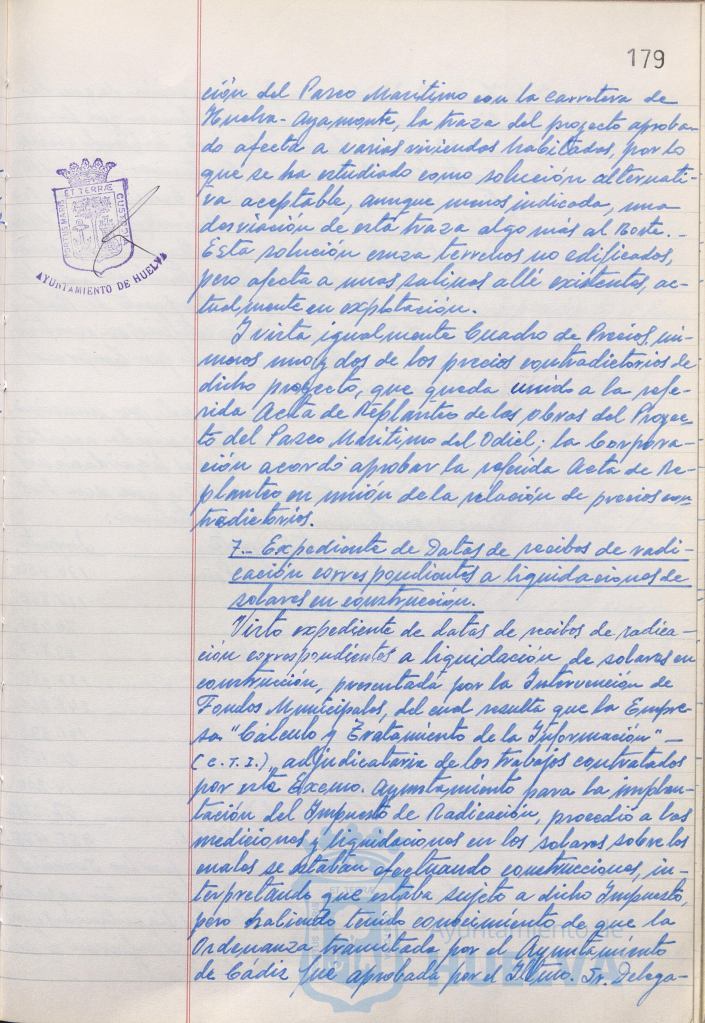 179
ción del Paseo Marítimo con la carretera de
Huelva-Ayamonte, la traza del proyecto aproba-
do afecta a varias viviendas habitadas, por lo
que se ha estudiado como solución alternati-
va aceptable, aunque menos indicada, una
desviación de esta traza algo más al Norte.-
Esta solución cruza terrenos no edificados,
pero afecta a unas salinas allí existentes, ac-
tualmente en explotación.
Y vista igualmente Cuadro de Precios, nú-
meros uno y dos de los precios contradictorios de
dicho proyecto, que queda unido a la refe-
rida Acta de Replanteo de las obras del Proyec-
to del Paseo Marítimo del Odiel; la Corpora-
ción acordó aprobar la referida Acta de Re-
planteo en unión de la relación de precios con-
tradictorios.
7.- Expediente de Datas de recibos de radi-
cación correspondientes a liquidaciones de
solares en construcción.
Visto expediente de datas de recibos de radica-
ción correspondientes a liquidación de solares en
construcción, presentada por la Intervención de
Fondos Municipales, del cual resulta que la Empre-
sa "Cálculo y Tratamiento de la Información"-
(C.T.I.), adjudicataria de los trabajos contratados
por este Excmo. Ayuntamiento para la implan-
tación del Impuesto de Radicación, procedió a las
mediciones y liquidaciones en los solares sobre los
cuales se estaban efectuando construcciones, in-
terpretando que estaba sujeto a dicho Impuesto,
pero habiendo tenido conocimiento de que la
Ordenanza tramitada por el Ayuntamiento
de Cádiz fue aprobada por el Iltmo. Sr. Delega-
ET TERRAE
PORTUS MARIS
CUSTODIA
AYUNTAMIENTO DE HUELVA
Ayuntamiento de
HUELVA